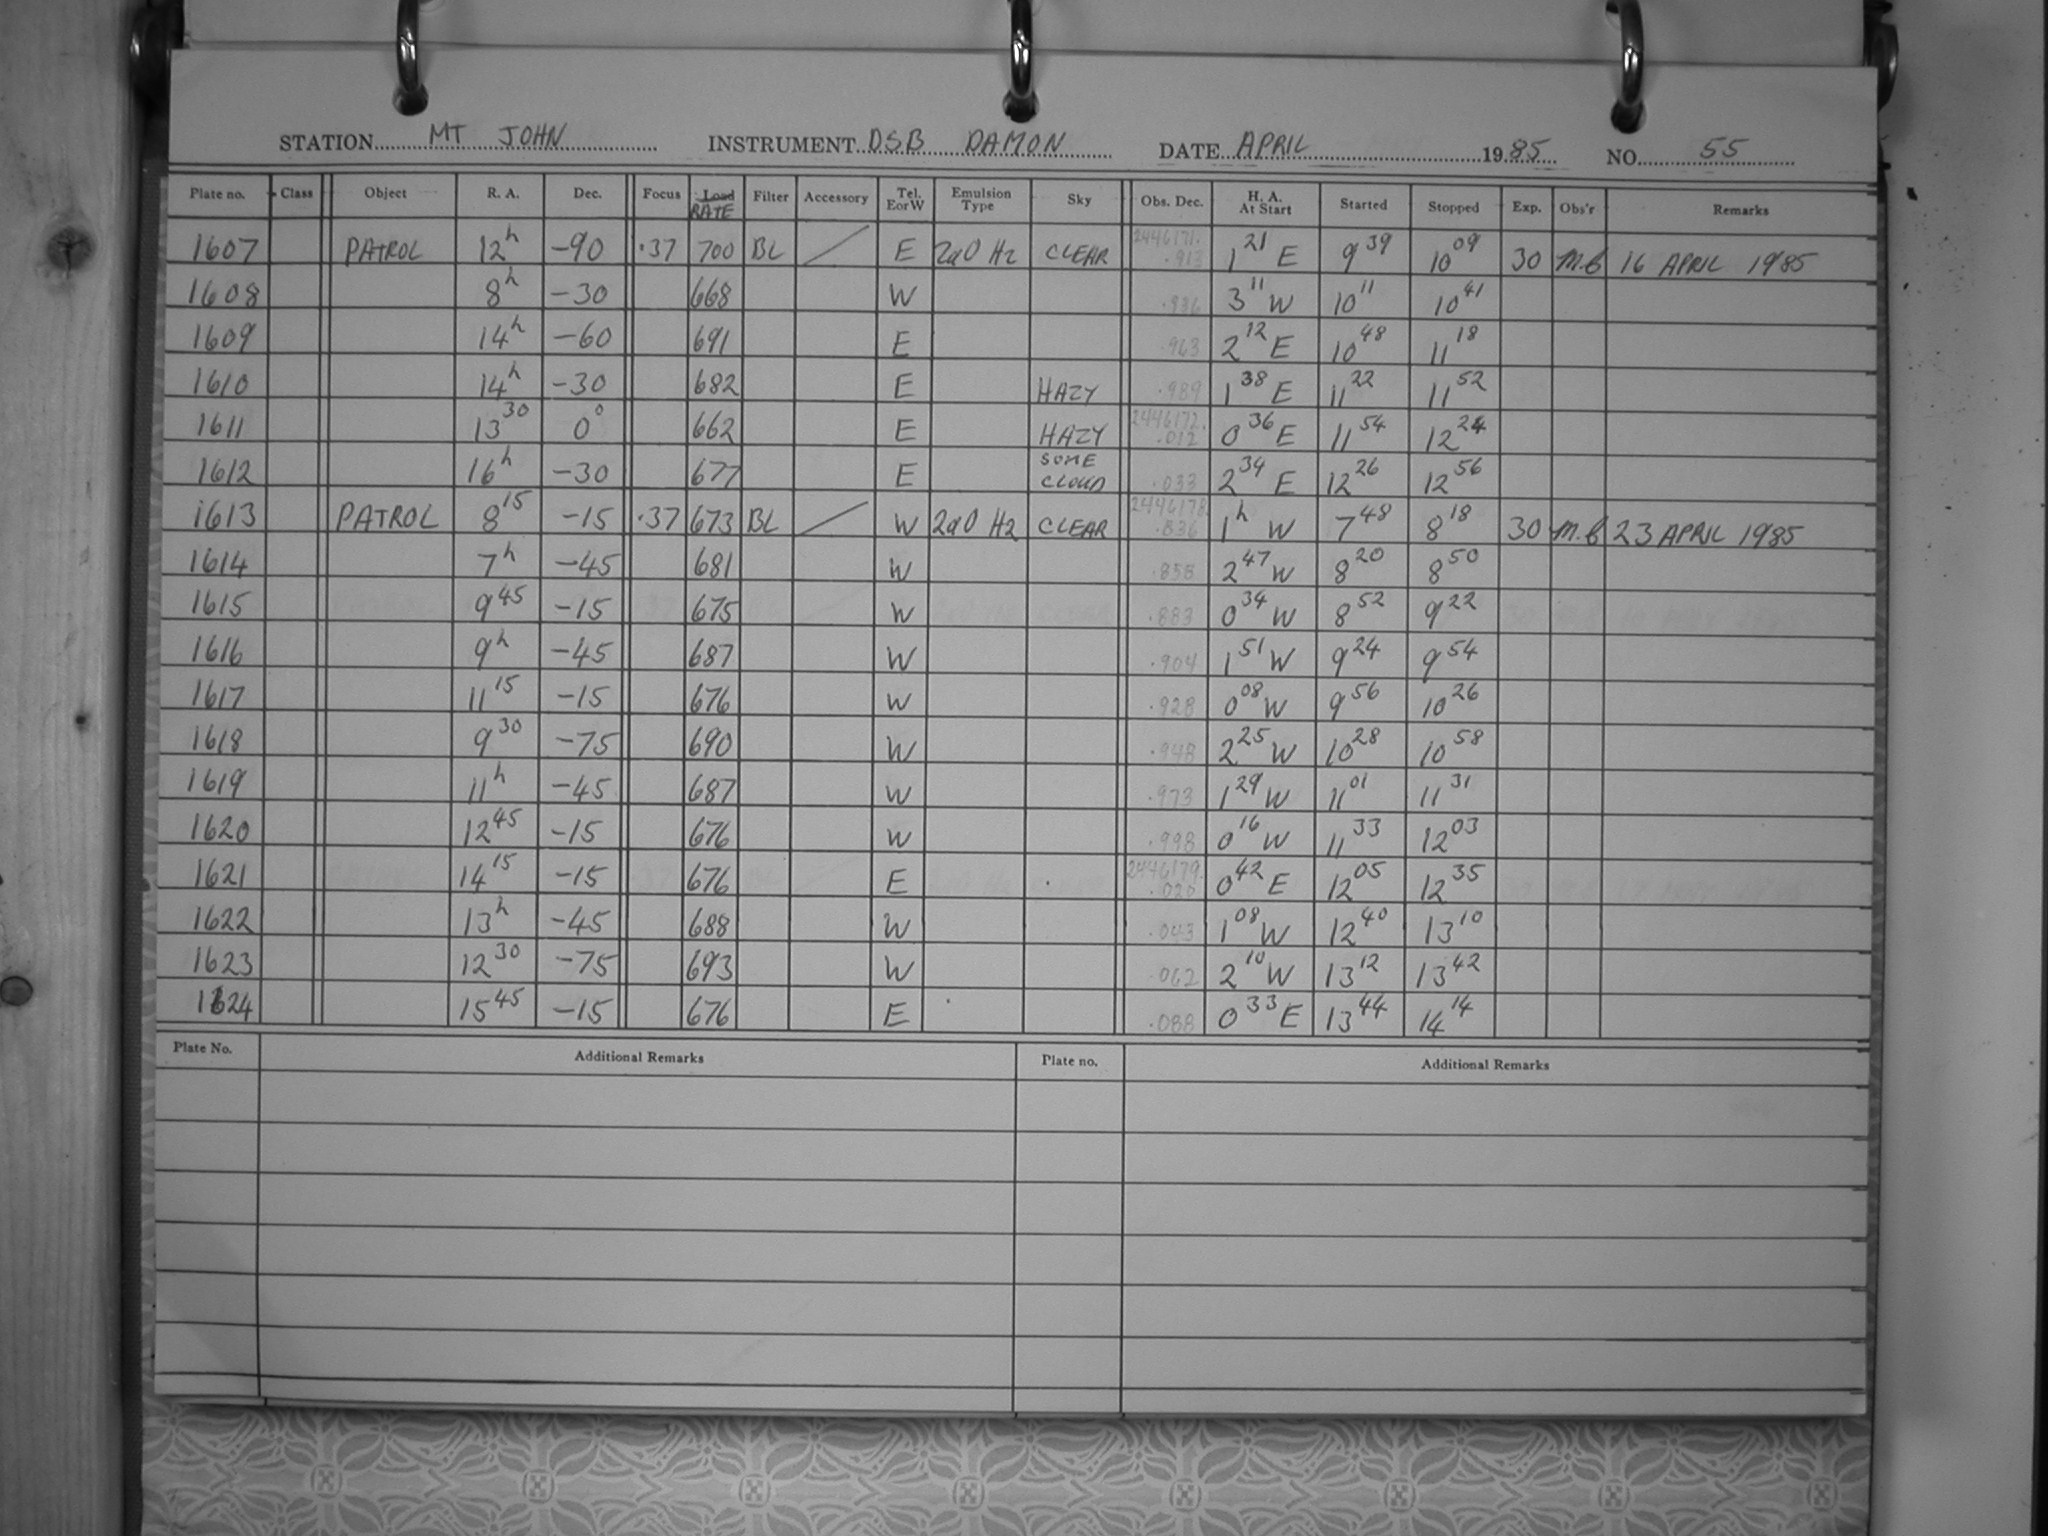 STATION MT JOHN INSTRUMENT DSB DAMON DATE APRIL 1985 NO. 55
Plate no. Class Object R. A. Dec. Focus Load RATE Filter Accessory Tel. EorW Emulsion Type Sky Obs. Dec. H. A. At Start Started Stopped Exp. Obs'r Remarks
1607 PATROL 12h -90 .37 700 BL / E 2aO H2 CLEAR 2446171. .913 1 21 E 9 39 10 09 30 M.B 16 APRIL 1985
1608 8h -30 668 W .936 3 11 W 10 11 10 41
1609 14h -60 691 E .963 2 12 E 10 48 11 18
1610 14h -30 682 E HAZY .989 1 38 E 11 22 11 52
1611 13 30 0° 662 E HAZY 2446172. .012 0 36 E 11 54 12 24
1612 16h -30 677 E SOME CLOUD .033 2 34 E 12 26 12 56
1613 PATROL 8 15 -15 .37 673 BL / W 2aO H2 CLEAR 2446178 .836 1h W 7 48 8 18 30 M.B 23 APRIL 1985
1614 7h -45 681 W .858 2 47 W 8 20 8 50
1615 9 45 -15 675 W .883 0 34 W 8 52 9 22
1616 9h -45 687 W .904 1 51 W 9 24 9 54
1617 11 15 -15 676 W .928 0 08 W 9 56 10 26
1618 9 30 -75 690 W .948 2 25 W 10 28 10 58
1619 11h -45 687 W .973 1 29 W 11 01 11 31
1620 12 45 -15 676 W .998 0 16 W 11 33 12 03
1621 14 15 -15 676 E 2446179. .020 0 42 E 12 05 12 35
1622 13h -45 688 W .043 1 08 W 12 40 13 10
1623 12 30 -75 693 W .062 2 10 W 13 12 13 42
1624 15 45 -15 676 E .088 0 33 E 13 44 14 14
Plate No. Additional Remarks Plate no. Additional Remarks